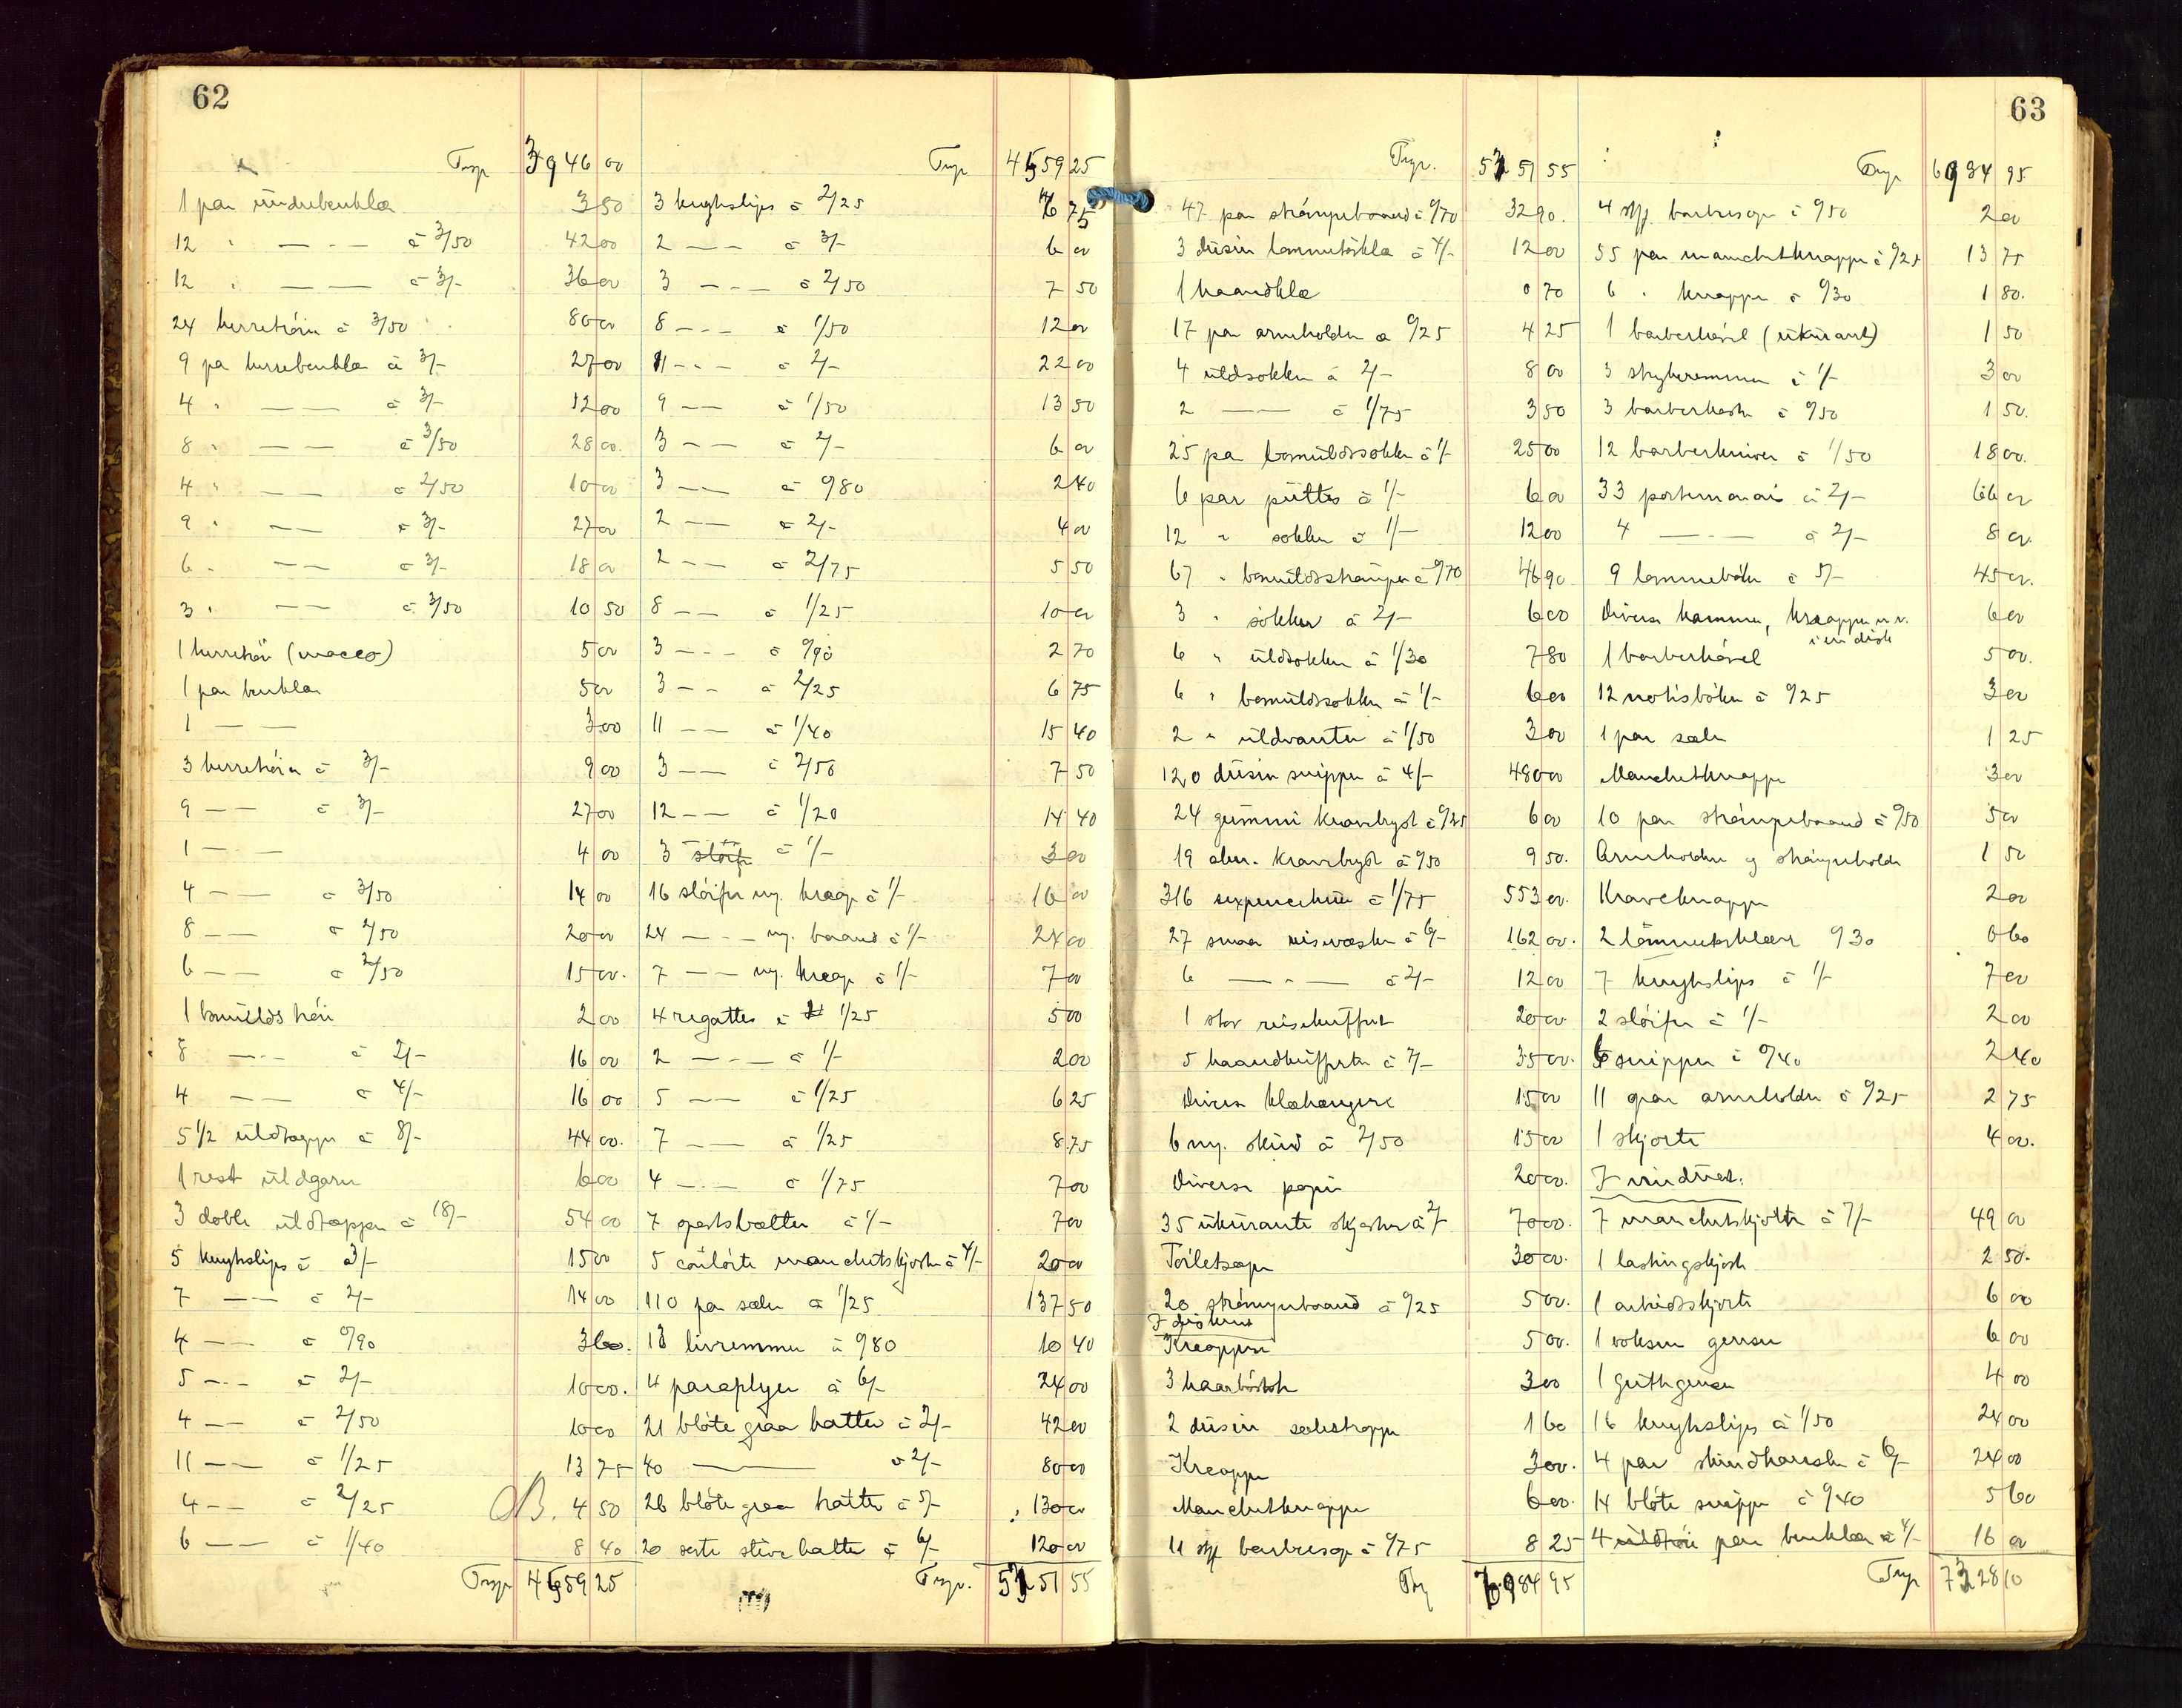 62
Trsp 3946 00
1 par underbenklær 3 50
12 " — - — à 3/50 42 00
12 " — — à 3/- 36 00
24 herretröier à 3/50 80 00
9 par herrebenklær à 3/- 27 00
4 " — — à 3/- 12 00
8 " — — à 3/50 28 00.
4 " — — à 2/50 10 00
9 " — — à 3/- 27 00
6 " — — à 3/- 18 00
3 " — — à 3/50 10 50
1 herretröi (macco) 5 00
1 par benklær 5 00
1 — — 3 00
3 herretröier à 3/- 9 00
9 — — à 3/- 27 00
1 — — 4 00
4 — — à 3/50 14 00
8 — — à 2/50 20 00
6 — — à 2/50 15 00.
1 bomulds tröi 2 00
8 — - — à 2/- 16 00
4 — — à 4/- 16 00
5 1/2 uldtæpper à 8/- 44 00.
1 rest uldgarn 6 00
3 doble uldtæpper à 18/- 54 00
5 knyhslips à 3/- 15 00
7 — — à 2/- 14 00
4 — — à 0/90 3 60.
5 — — à 2/- 10 00.
4 — — à 2/50 10 00
11 — — à 1/25 13 75
4 — — à 2/25 4 50
6 — — à 1/40 8 40
Trsp 4559 25
Trsp 4559 25
3 knyhslips à 2/25 6 75
2 — — à 3/- 6 00
3 — - — à 2/50 7 50
8 — - — à 1/50 12 00
11 — - — à 2/- 22 00
9 — — à 1/50 13 50
3 — — à 2/- 6 00
3 — — à 0/80 2 40
2 — — à 2/- 4 00
2 — — à 2/75 5 50
8 — — à 1/25 10 00
3 — - — à 0/90 2 70
3 — — à 2/25 6 75
11 — — à 1/40 15 40
3 — — à 2/50 7 50
12 — — à 1/20 14 40
3 slöifr à 1/- 3 00
16 slöifer m. krage à 1/- 16 00
24 — - — m. baand à 1/- 24 00
7 — — m. krage à 1/- 7 00
4 regattes à 1/25 5 00
2 — - — à 1/- 2 00
5 — — à 1/25 6 25
7 — — à 1/25 8.75
4 — - — à 1/75 7 00
7 sportsbælter à 1/- 7 00
5 coulörte manchetskjorter à 4/- 20 00
110 par sæler à 1/25 137 50
13 livremmer à 0/80 10 40
4 paraplyer à 6/- 24 00
21 blöte graa hatter à 2/- 42 00
40 — — à 2/- 80 00
26 blöte graa hatter à 5/- 130 00
20 sorte stive hatter à 6/- 120 00
Trsp. 5351 55
63
Trsp. 5351 55
47 par strömpebaand à 0/70 32 90.
3 dusin lommetörklæ à 4/- 12 00
1 haandklæ 0 70
17 par armholder à 0/25 4 25
4 uldsokker à 2/- 8 00
2 — — à 1/75 3 50
25 par bomuldssokker à 1/- 25 00
6 par puttes à 1/- 6 00
12 " sokker à 1/- 12 00
67 " bomuldsströmper à 0/70 46 90
3 " sokker à 2/- 6 00
6 " uldsokker à 1/30 7 80
6 " bomuldssokker à 1/- 6 00
2 " uldvanter à 1/50 3 00
120 dusin snipper à 4/- 480 00
24 gummi kravebryst à 0/25 6 00
19 alm. kravebryst à 0/50 9 50.
316 sixpencehuer à 1/75 553 00.
27 smaa reisevæsker à 6/- 162 00.
6 — - — à 2/- 12 00
1 stor reisekuffert 20 00
5 haandkufferter à 7/- 35 00.
Diverse klæhængere 15 00
6 m. skind à 2/50 15 00
Diverse papir 20 00.
35 ukurante skjorter à 2/- 70 00.
Toiletsaper 30 00.
20 strömpebaand à 0/25 5 00.
I disken
Knapper 5 00.
3 haarbörster 3 00
2 dusin sælestropper 1 60
Knapper 3 00.
Manchetknapper 6 00.
11 stk barbersæpe à 0/75 8 25
Trsp 6984 95
Trsp 6984 95
4 stk barbersæpe à 0/50 2 00
55 par manchetknapper à 0/25 13 75
6 " knapper à 0/30 1 80.
1 barberhövel (ukurant) 1 50
3 strykeremmer à 1/- 3 00
3 barberkoster à 0/50 1 50.
12 barberkniver à 1/50 18 00.
33 portemonai à 2/- 66 00
4 — - — à 2/- 8 00.
9 lommeböker à 5/- 45 00.
Diverse kammer, knapper m.v. 6 00
i en disk
1 barberhövel 5 00.
12 notisböker à 0/25 3 00
1 par sæler 1 25
Manchetknapper 3 00
10 par strömpebaand à 0/50 5 00
Armholder og strömpeholder 1 50
Kraveknapper 2 00
2 lommetörklær 0/30 0 60
7 knyhslips à 1/- 7 00
2 slöifer à 1/- 2 00
6 snipper à 0/40 2 40
11 par armholder à 0/25 2 75
1 skjorte 4 00.
I vinduet.
7 manchetskjorter à 7/- 49 00
1 lastingskjorte 2 50.
1 arbeidsskjorte 6 00
1 voksen genser 6 00
1 guttegenser 4 00
16 knyhslips à 1/50 24 00
4 par skindhansker à 6/- 24 00
14 blöte snipper à 0/40 5 60
4 uldtröie par benklær à 4/- 16 00
Trsp 7328 10